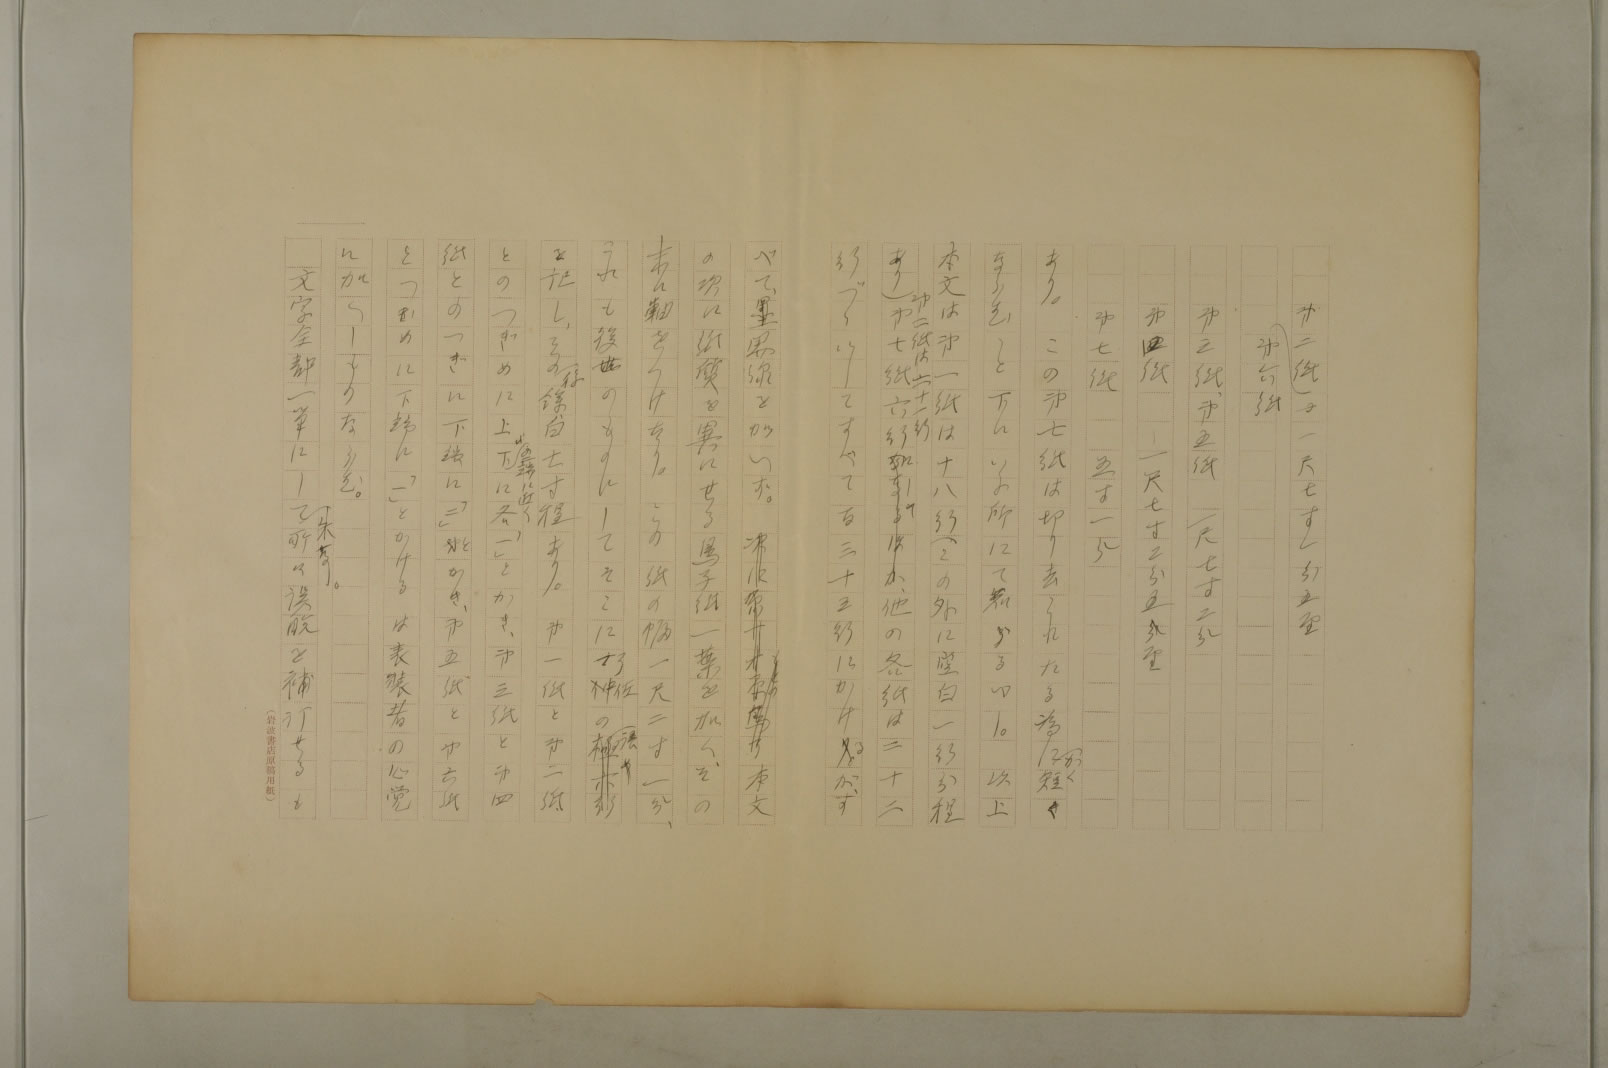 第二紙 一尺七寸一分五厘
第六紙
第三紙、第五紙 一尺七寸二分
第四紙 一尺七寸二分五厘
第七紙 五寸一分
あり。この第七紙は切り去られたる為にかく短き
ならむこと下にいふ所にて知らるべし。以上
本文は第一紙は十八行(この外に空白一行分程
あり)第二紙は二十一行第七紙六行にして、他の各紙は二十二
行づゝにしてすべて百三十五行にかけるが、す
べて墨界線を
本文
の次に紙質を異にせる鳥子紙一葉を加へ、その
末に軸をつけたり。この紙の幅一尺二寸一分、
これも後世のものにしてそこに
を記し、その余白七寸程あり。第一紙と第二紙
とのつぎめに上下の端に近く各「一」とかき、第三紙と第四
紙とのつぎに下端に「二」とかき、第五紙と第六紙
とつぎめに下端に「一」とかけるは表装者の心覚
に加へしものならむ。
文字全部一筆にして所々誤脱を補訂せるも
朱なり。
(岩波書店原稿用紙)